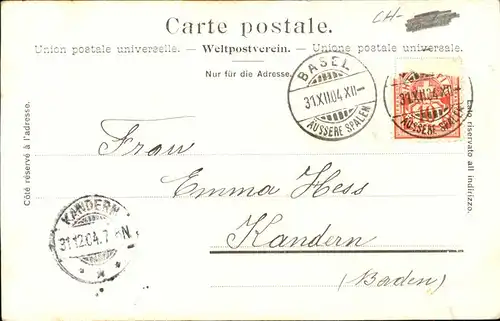 CH-
Carte postale.
Union postale universelle. — Weltpostverein. — Unione postale universale.
Nur für die Adresse.
BASEL
31.XII.04.XII-
ÄUSSERE SPALEN
31.XII.04.XII-
ÄUSSERE SPALEN
Côté réservé à l'adresse.
Lato riservato all indirizzo.
Frau
Emma Hess
Kandern
(Baden)
KANDERN
31.12.04.7-N